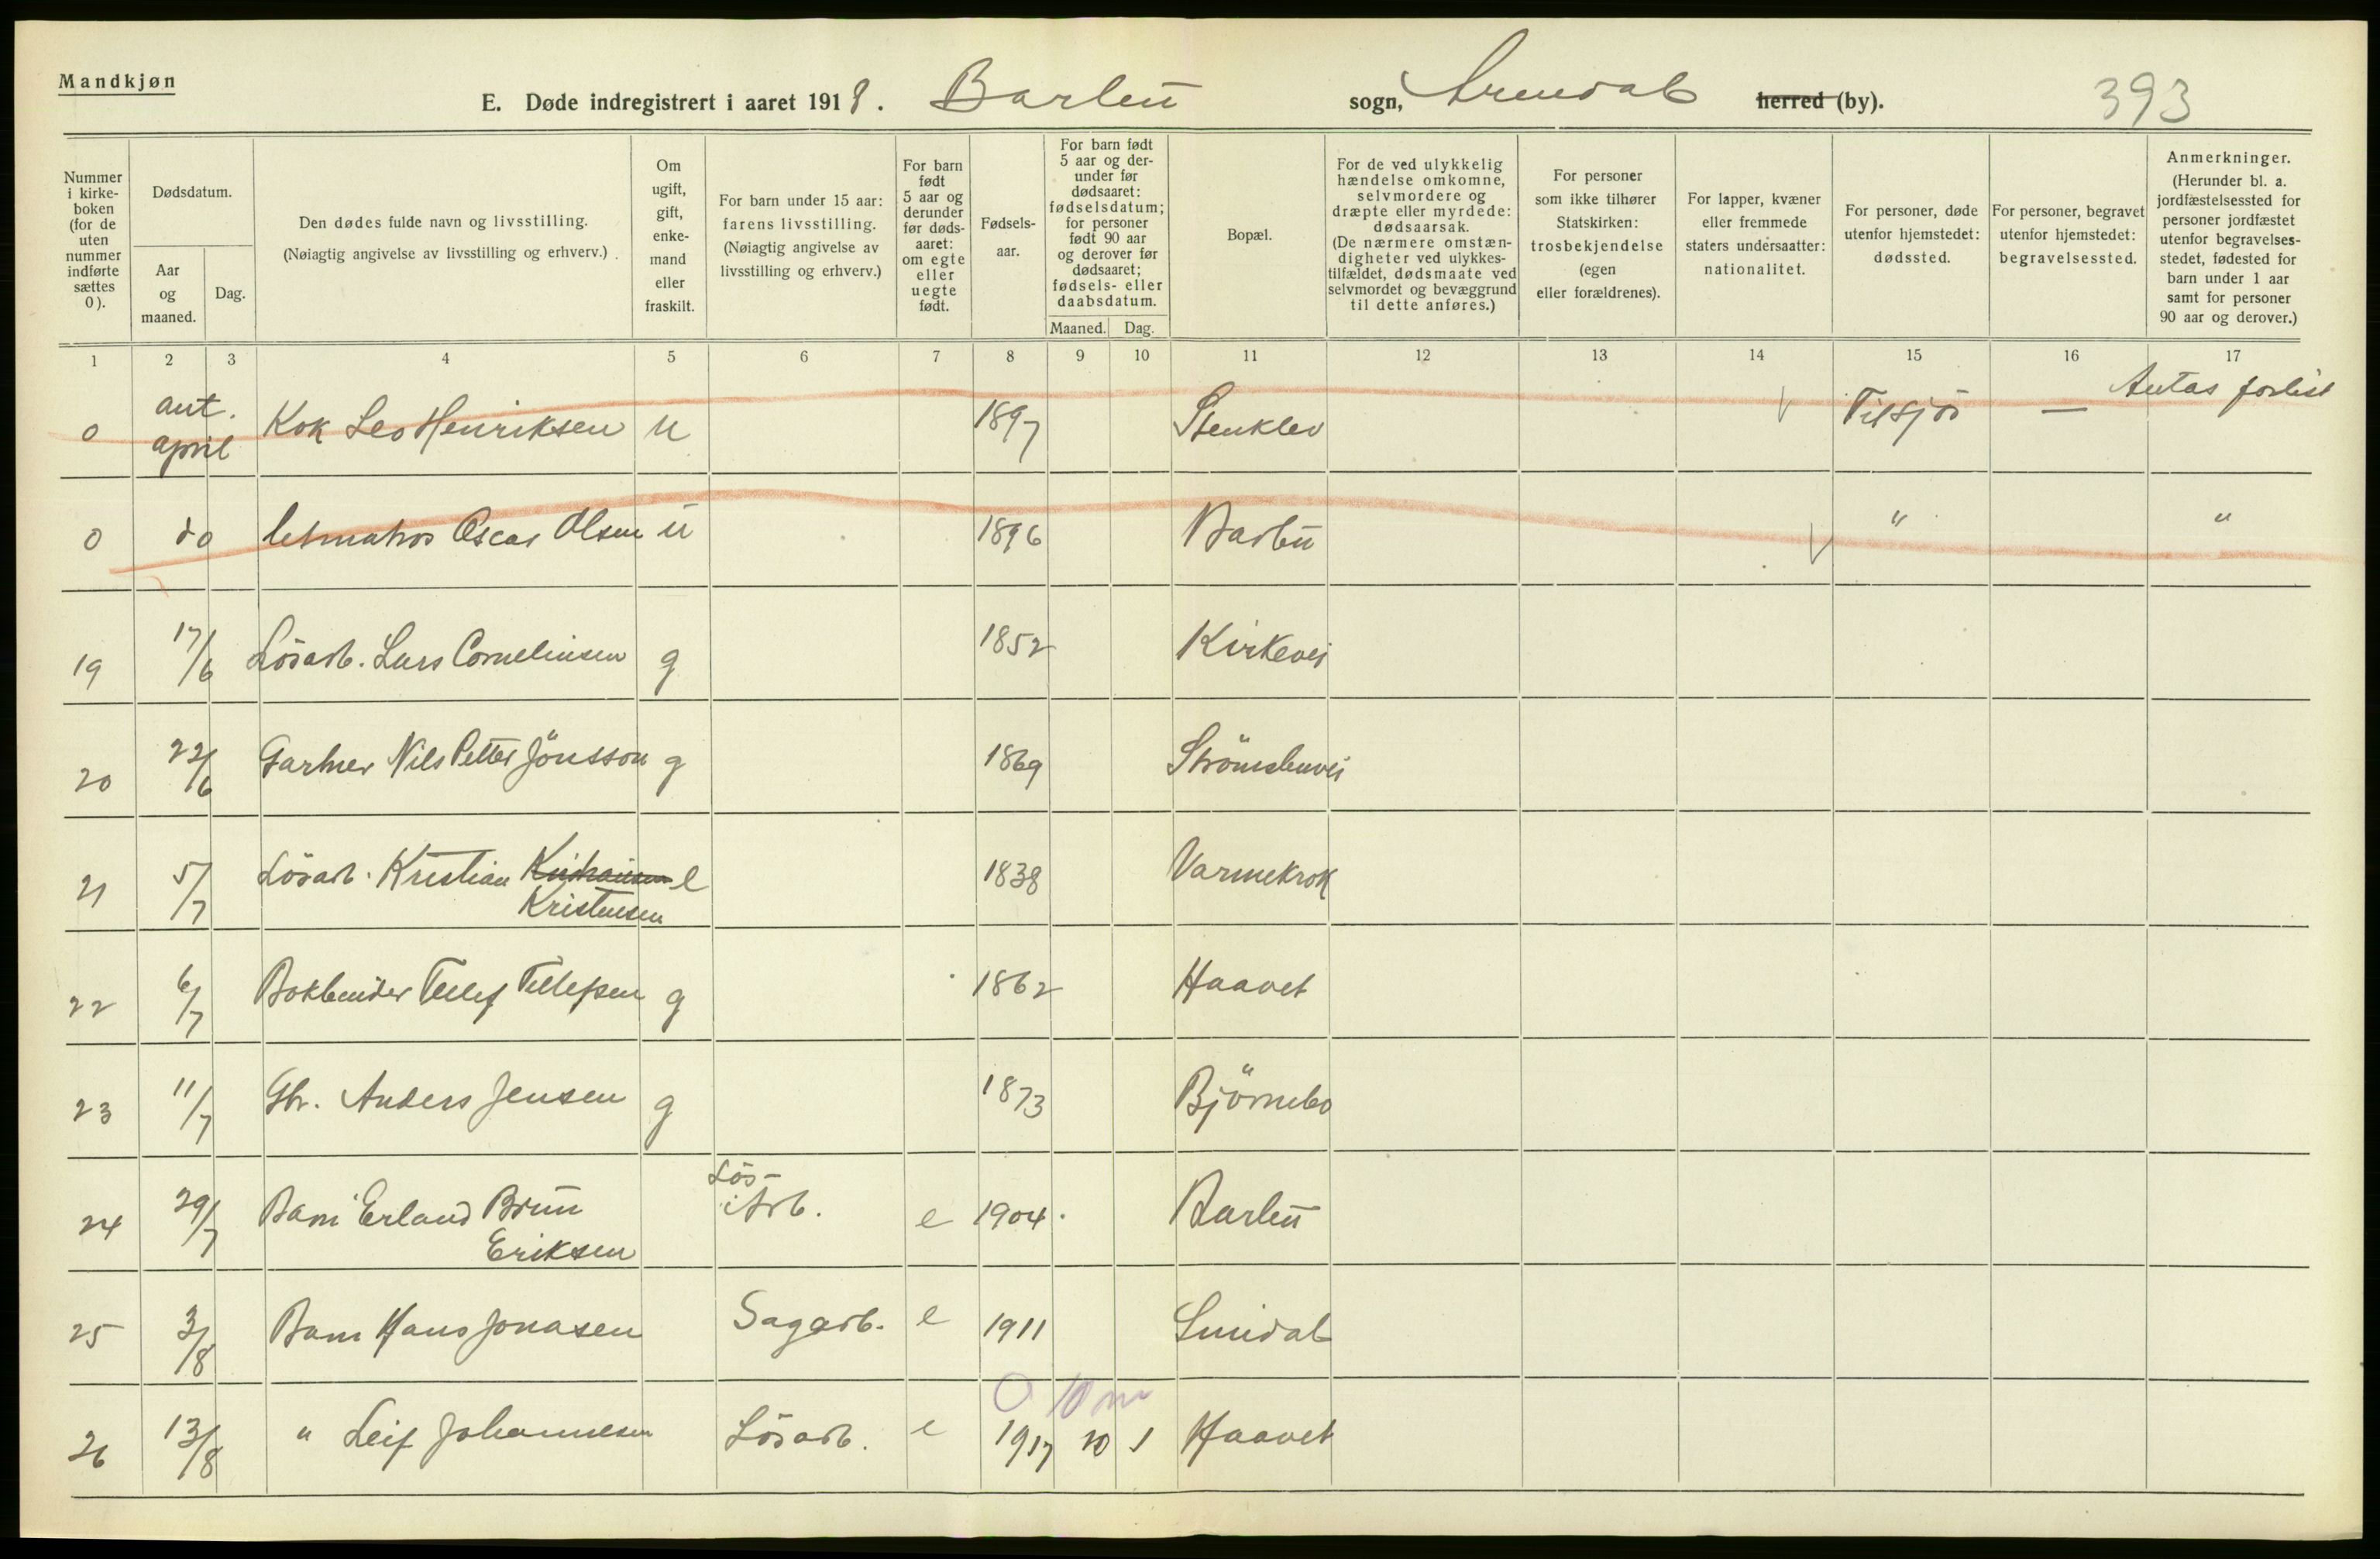 Mandkjøn
E. Døde indregistrert i aaret 1918. Barbu sogn, Arendal herred (by). 393
Nummer i kirke-boken (for de uten nummer indførte sættes 0).
Dødsdatum.
Aar og maaned.
Dag.
Den dødes fulde navn og livsstilling.
(Nøiagtig angivelse av livsstilling og erhverv.)
Om ugift, gift, enke-mand eller fraskilt.
For barn under 15 aar: farens livsstilling.
(Nøiagtig angivelse av livsstilling og erhverv.)
For barn født 5 aar og derunder før døds-aaret: om egte eller uegte født.
Fødsels-aar.
For barn født 5 aar og der-under før dødsaaret: fødselsdatum; for personer født 90 aar og derover før dødsaaret; fødsels- eller daabsdatum.
Maaned. Dag.
Bopæl.
For de ved ulykkelig hændelse omkomne, selvmordere og dræpte eller myrdede: dødsaarsak.
(De nærmere omstæn-digheter ved ulykkes-tilfældet, dødsmaate ved selvmordet og bevæggrund til dette anføres.)
For personer som ikke tilhører Statskirken: trosbekjendelse (egen eller forældrenes).
For lapper, kvæner eller fremmede staters undersaatter: nationalitet.
For personer, døde utenfor hjemstedet: dødssted.
For personer, begravet utenfor hjemstedet: begravelsessted.
Anmerkninger.
(Herunder bl. a. jordfæstelsessted for personer jordfæstet utenfor begravelses-stedet, fødested for barn under 1 aar samt for personer 90 aar og derover.)
1 2 3 4 5 6 7 8 9 10 11 12 13 14 15 16 17
0 ant. april Kok Leo Henriksen u 1897 Stenklev Tilsjös — Antas forlist
0 do letmatros Oscar Olsen u 1896 Barbu " "
19 17/6 Lösarb. Lars Corneliusen g 1852 Kirkevei
20 22/6 Gartner Nils Petter Jönsson g 1869 Strömsbuvei
21 5/7 Lösarb. Kristian e 1838 Varmekrok
Kristensen
22 6/7 Bokbinder Tellef Tellefsen g 1862 Haavet
23 11/7 Gbr. Anders Jensen g 1873 Björnebo
24 29/7 Barn Erland Brun Lös-Arb. e 1904 Barbu
Eriksen
25 3/8 Barn Hans Jonasen Sagarb. e 1911 Sundal
0 10 m
26 13/8 " Leif Johannesen Lösarb. e 1917 10 1 Haavet